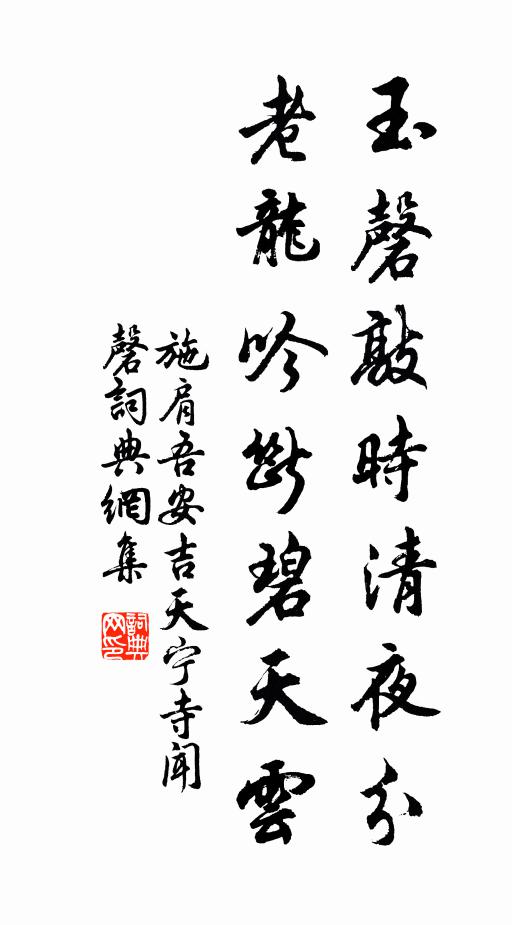 玉磬敲時清夜分
老龍吟斷碧天雲
施肩吾安吉天宁寺聞
磬詞典網集
詞典
网印